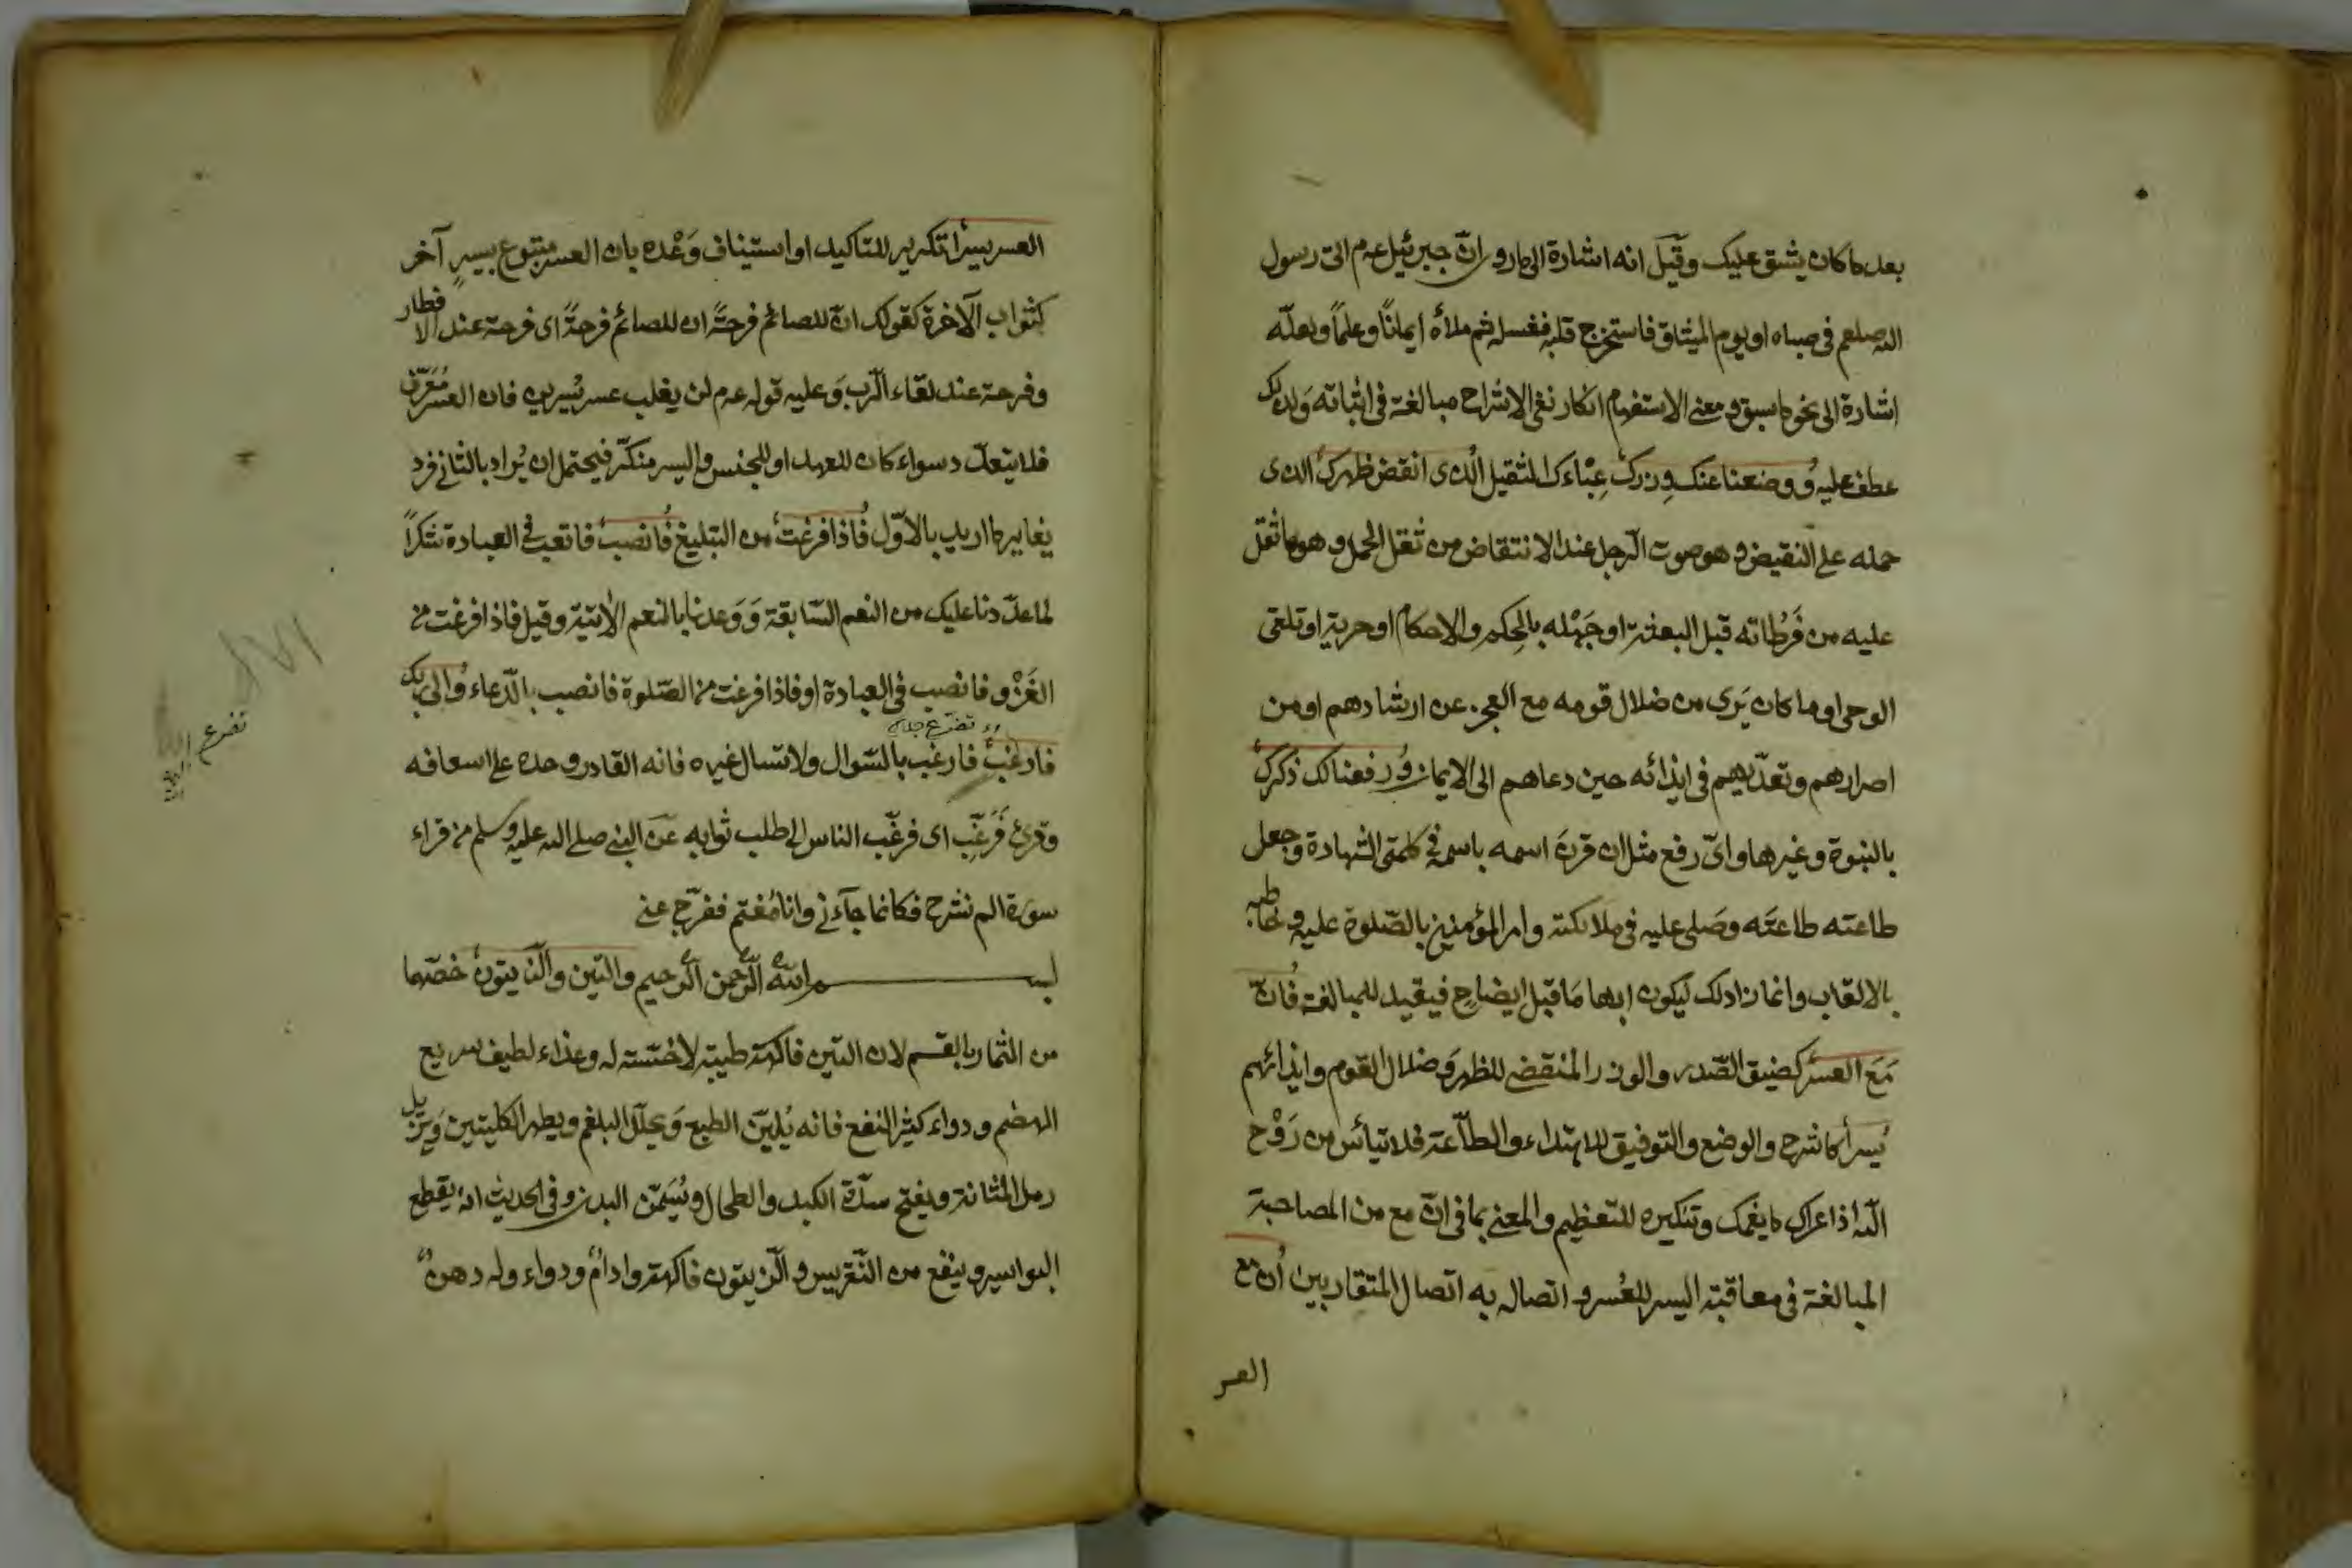 بعد ما كان يشق عليك وقيل انه اشارة الى ما روى ان جبرئيل عم اتى رسول
الله صلعم فى صباه او يوم الميثاق فاستخرج قلبه فغسله ثم ملأه ايمانًا وعلمًا ولعلّه
اشارة الى نحو ما سبق ومعنى الاستفهام انكار نفى الانشراح مبالغة فى اثباته ولذلك
عطف عليه ووضعنا عنك وزرك عِبْاءَك الثقيل الّذى انقض ظهرك الذى
حمله على النقيض وهو صوت الرّجل عند الانتقاض من ثقل الحمل وهو ما ثقل
عليه من فَرَطاته قبل البعثة او جَهْله بالحِكم والاحكام او حريته او تلقى
الوحى او ما كان يَرى من ضلال قومه مع العجز عن ارشادهم او من
اصرارهم وتعدّيهم فى ايذائه حين دعاهم الى الايمان ورفعنا لك ذكرك
بالنبوة وغيرها واىّ رفع مثل ان قرن اسمه باسمه فى كلمتى الشهادة وجعل
طاعته طاعتَه وصَلى عليه فى ملائكته وامر المؤمنين بالصّلوة عليه وخاطبه
بالالقاب وانما زاد لك ليكون ابهامًا قبل ايضاحٍ فيفيد للمبالغة فانّ
مَعَ العسر كضيق الصّدر والوزر المنقض للظهر وَضلال القوم وايذائهم
يُسرًا كالشرح والوضع والتوفيق للاهتداء والطاّعة فلا تيأس من رَوْح
الله اذا عراك ما يغمّك وتنكيره للتعظيم والمعنى بما فى انّ مع من المصاحبة
المبالغة فى معاقبة اليسر للعُسر واتصاله به اتصال المتقاربين ان مع
العسر
العسر يسرًا تكرير للتاكيد او استيناف وَعْده بان العسر متبوع بيسرٍ آخر
كثواب الآخرة كقولك انّ للصائم فرحةً ان للصائم فرحةً اى فرحة عند الافطار
وفرحة عند لقاء الرّب وَعليه قوله عم لن يغلب عسر يُسرين فان العسر مُعَرّف
فلا يتعدّد سواء كان للعهد او للجنس واليسر منكّر فيحتمل ان يُراد بالثانى فرد
يغاير ما اريد بالاوّل فاذا فرغت من التبليغ فانصب فاتعب فى العبادة شكرًا
لما عدّدنا عليك من النعم السّابقة وَوَعدنا بالنعم الآتية وقيل فاذا فرغت من
الغَزْو فانصب فى العبادة او فاذا فرغت من الصّلوة فانصب بالدّعاء والى ربك
تضرع
فارغب فارغب بالسّوال ولا تسال غيره فانه القادر وحده على اسعافه
تضرع
وقرئ فَرَغِّب اى فرغّب الناس الى طلب ثوابه عَن النبى صلى الله عليه وسلم من قراء
سورة الم نشرح فكانما جآءنى وانا مُغتم ففرّج عنى
بسم الله الرّحمن الرّحيم والتّين والزّيتون خصّهما
من الثمار بالقسم لان التين فاكهة طيبة لا فضلة له وغذاء لطيف سريع
الهضم ودواء كثير النفع فانه يُليّن الطبع وَيحلّل البلغم ويطهر الكليتين وَيزيل
رمل المثانة ويفتح سدّة الكبد والطحال ويُسَمّن البدن وفى الحديث انه يقطع
البواسير وينفع من النّقريس والزّيتون فاكهة وادامٌ ودواء وله دهنٌ